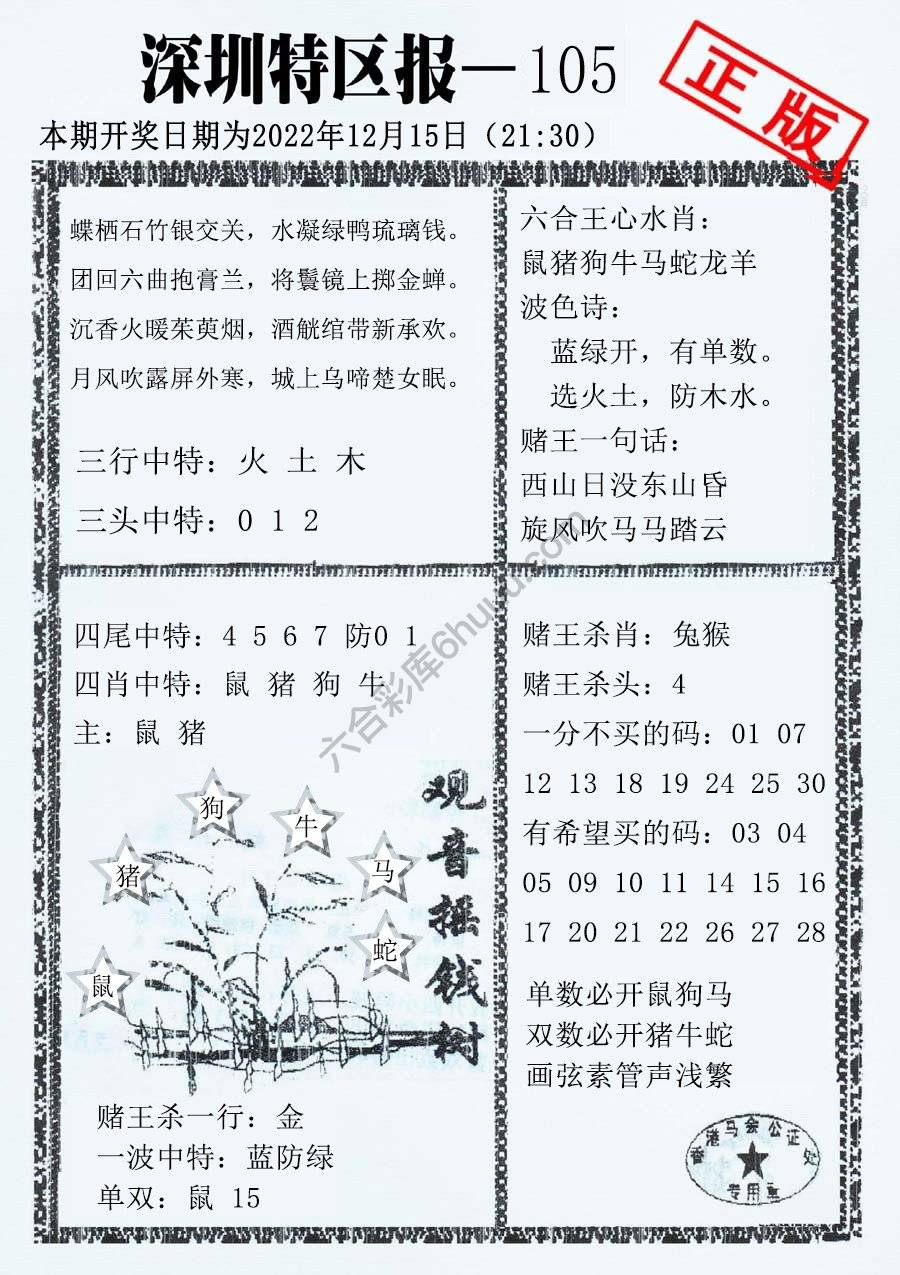 深圳特区报—105
正版
本期开奖日期为2022年12月15日（21:30）
蝶栖石竹银交关，水凝绿鸭琉璃钱。
团回六曲抱膏兰，将鬟镜上掷金蝉。
沉香火暖茱萸烟，酒觥绾带新承欢。
月风吹露屏外寒，城上乌啼楚女眠。
三行中特：火 土 木
三头中特：0 1 2
六合王心水肖：
鼠猪狗牛马蛇龙羊
波色诗：
蓝绿开，有单数。
选火土，防木水。
赌王一句话：
西山日没东山昏
旋风吹马马踏云
四尾中特：4 5 6 7 防0 1
四肖中特：鼠 猪 狗 牛
主：鼠 猪
狗
牛
猪
马
蛇
鼠
观音摇钱树
赌王杀一行：金
一波中特：蓝防绿
单双：鼠 15
赌王杀肖：兔猴
赌王杀头：4
一分不买的码：01 07
12 13 18 19 24 25 30
有希望买的码：03 04
05 09 10 11 14 15 16
17 20 21 22 26 27 28
单数必开鼠狗马
双数必开猪牛蛇
画弦素管声浅繁
香港马会公证处
专用章
六合彩库6huuu.com